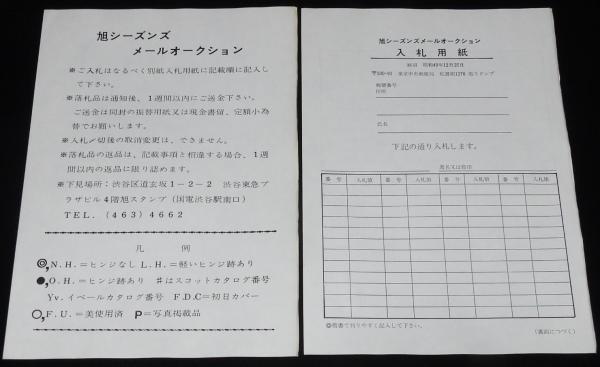 旭シーズンズ
メールオークション
※ご入札はなるべく別紙入札用紙に記載順に記入し
て下さい。
※落札品は通知後、1週間以内にご送金下さい。
ご送金は同封の振替用紙又は現金書留、定額小為
替でお願いします。
※入札〆切後の取消変更は、できません。
※落札品の返品は、記載事項と相違する場合、1週
間以内の返品に限り認めます。
※下見場所：渋谷区道玄坂1－2－2 渋谷東急プ
ラザビル4階旭スタンプ（国電渋谷駅南口）
TEL.（463）4662
凡例
◎,N.H.＝ヒンジなし L.H.＝軽いヒンジ跡あり
●,O.H.＝ヒンジ跡あり #はスコットカタログ番号
Yv.イベールカタログ番号 F.D.C＝初日カバー
○,F.U.＝美使用済 P＝写真掲載品
旭シーズンズメールオークション
入札用紙
昭和49年12月20日
東京中央郵便局 私書箱1276 旭スタンプ
郵便番号
住所
氏名
下記の通り入札します。
署名又は捺印
番号 入札値 番号 入札値 番号 入札値 番号 入札値
◎楷書で判りやすく記入して下さい。
（裏面につづく）